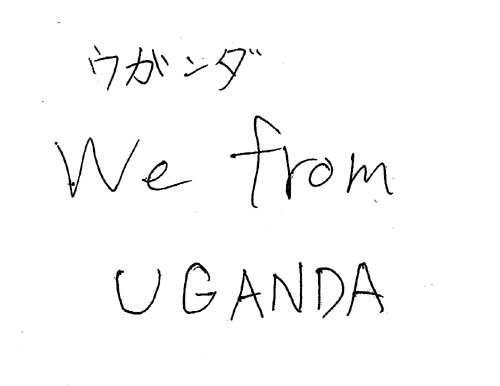 ウガンダ
We from
UGANDA